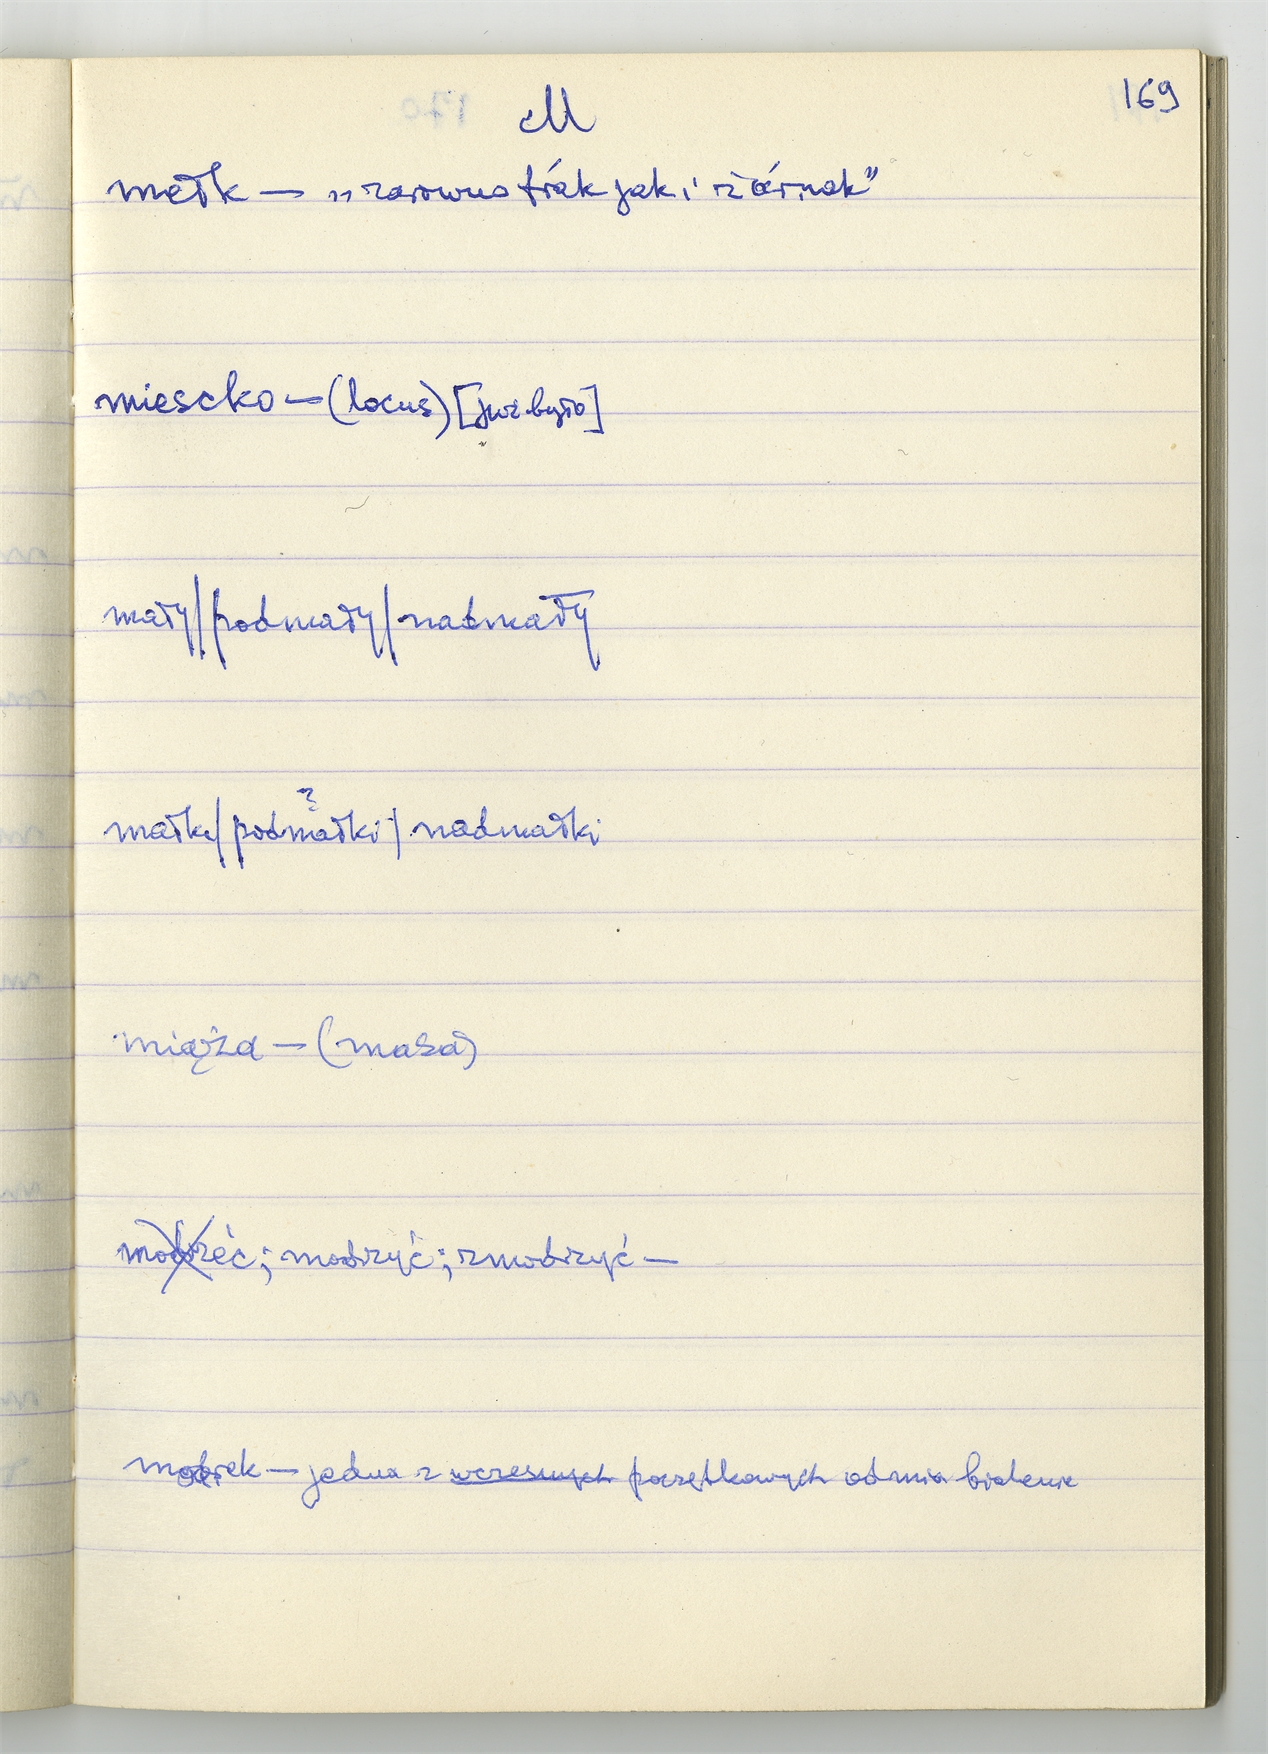 169
M
mełk — „zarowno trák jak i
miescko — (locus) [już było]
mały/podmały/nadmały
?
małki/podmałki/nadmałki
miązda — (masa)
modrzéć; modrzyć; zmodrzyć —
modrek — jedna z wczesnych początkowych odmian bielenie